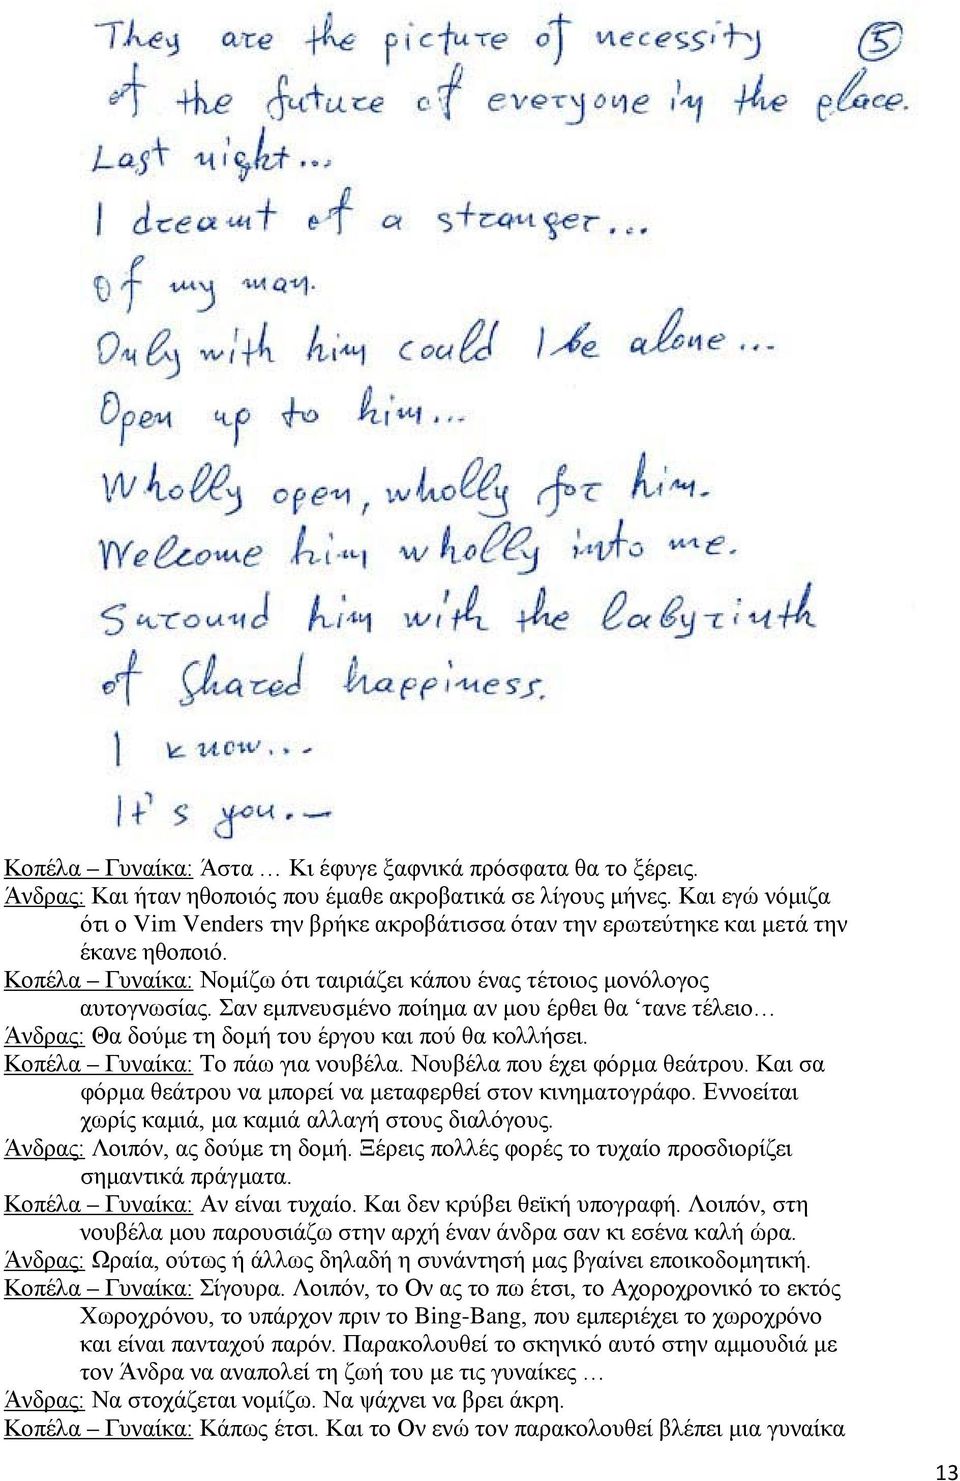 They are the picture of necessity ⑤
of the future of everyone in the place.
Last night...
I dreamt of a stranger...
Of my man.
Only with him could I be alone...
Open up to him...
Wholly open, wholly for him.
Welcome him wholly into me.
Suround him with the labyrinth
of shared happiness.
I know...
It's you.–
Κοπέλα – Γυναίκα: Άστα … Κι έφυγε ξαφνικά πρόσφατα θα το ξέρεις.
Άνδρας: Και ήταν ηθοποιός που έμαθε ακροβατικά σε λίγους μήνες. Και εγώ νόμιζα
ότι ο Vim Venders την βρήκε ακροβάτισσα όταν την ερωτεύτηκε και μετά την
έκανε ηθοποιό.
Κοπέλα – Γυναίκα: Νομίζω ότι ταιριάζει κάπου ένας τέτοιος μονόλογος
αυτογνωσίας. Σαν εμπνευσμένο ποίημα αν μου έρθει θα ‘τανε τέλειο…
Άνδρας: Θα δούμε τη δομή του έργου και πού θα κολλήσει.
Κοπέλα – Γυναίκα: Το πάω για νουβέλα. Νουβέλα που έχει φόρμα θεάτρου. Και σα
φόρμα θεάτρου να μπορεί να μεταφερθεί στον κινηματογράφο. Εννοείται
χωρίς καμιά, μα καμιά αλλαγή στους διαλόγους.
Άνδρας: Λοιπόν, ας δούμε τη δομή. Ξέρεις πολλές φορές το τυχαίο προσδιορίζει
σημαντικά πράγματα.
Κοπέλα – Γυναίκα: Αν είναι τυχαίο. Και δεν κρύβει θεϊκή υπογραφή. Λοιπόν, στη
νουβέλα μου παρουσιάζω στην αρχή έναν άνδρα σαν κι εσένα καλή ώρα.
Άνδρας: Ωραία, ούτως ή άλλως δηλαδή η συνάντησή μας βγαίνει εποικοδομητική.
Κοπέλα – Γυναίκα: Σίγουρα. Λοιπόν, το Ον ας το πω έτσι, το Αχοροχρονικό το εκτός
Χωροχρόνου, το υπάρχον πριν το Bing-Bang, που εμπεριέχει το χωροχρόνο
και είναι πανταχού παρόν. Παρακολουθεί το σκηνικό αυτό στην αμμουδιά με
τον Άνδρα να αναπολεί τη ζωή του με τις γυναίκες …
Άνδρας: Να στοχάζεται νομίζω. Να ψάχνει να βρει άκρη.
Κοπέλα – Γυναίκα: Κάπως έτσι. Και το Ον ενώ τον παρακολουθεί βλέπει μια γυναίκα
13